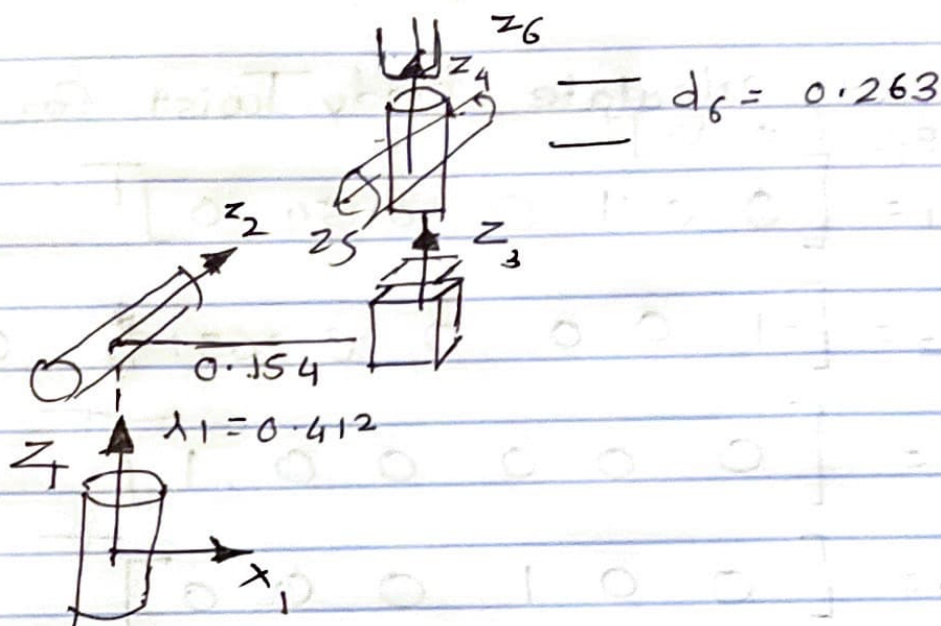 z6
z4
d6 = 0.263
z2
z5
z3
0.154
λ1 = 0.412
z1
x1